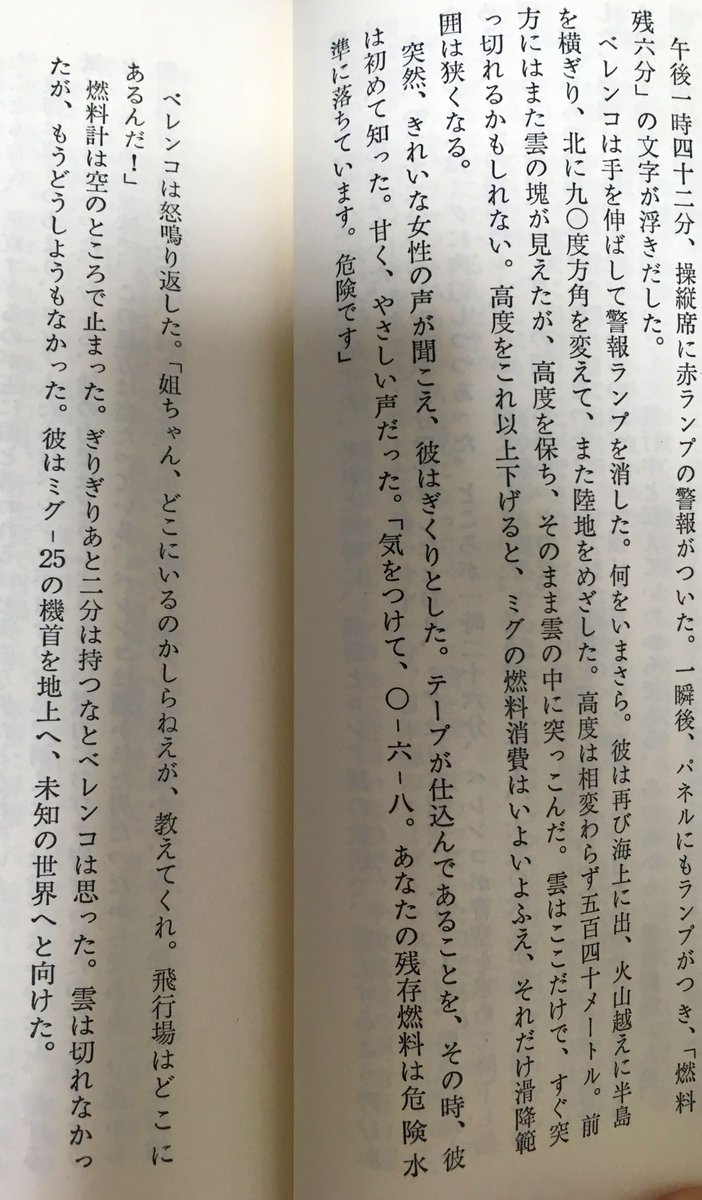 午後一時四十二分、操縦席に赤ランプの警報がついた。一瞬後、パネルにもランプがつき、「燃料
残六分」の文字が浮きだした。
ベレンコは手を伸ばして警報ランプを消した。何をいまさら。彼は再び海上に出、火山越えに半島
を横ぎり、北に九〇度方角を変えて、また陸地をめざした。高度は相変わらず五百四十メートル。前
方にはまた雲の塊が見えたが、高度を保ち、そのまま雲の中に突っこんだ。雲はここだけで、すぐ突
っ切れるかもしれない。高度をこれ以上下げると、ミグの燃料消費はいよいよふえ、それだけ滑降範
囲は狭くなる。
突然、きれいな女性の声が聞こえ、彼はぎくりとした。テープが仕込んであることを、その時、彼
は初めて知った。甘く、やさしい声だった。「気をつけて、〇-六-八。あなたの残存燃料は危険水
準に落ちています。危険です」
ベレンコは怒鳴り返した。「姐ちゃん、どこにいるのかしらねえが、教えてくれ。飛行場はどこに
あるんだ！」
燃料計は空のところで止まった。ぎりぎりあと二分は持つなとベレンコは思った。雲は切れなかっ
たが、もうどうしようもなかった。彼はミグ-25の機首を地上へ、未知の世界へと向けた。